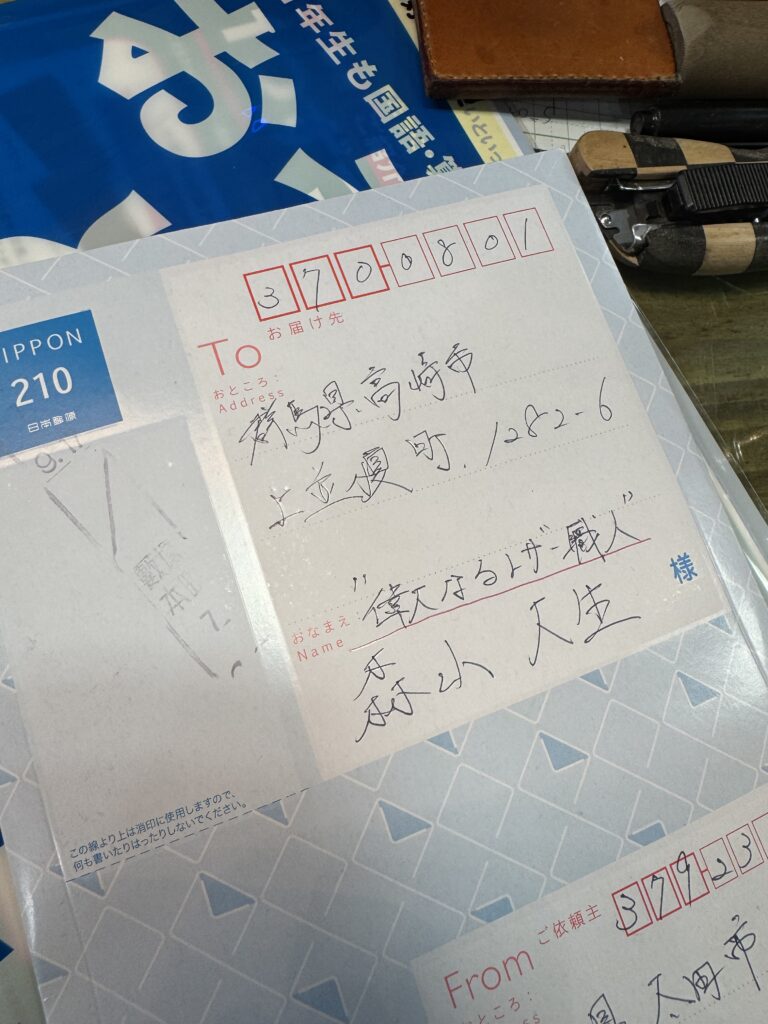 年生も国語・
いといっ
NIPPON
210
日本郵便
370-0801
To
お届け先
おところ：
Address
群馬県高崎市
上並榎町 1282-6
"偉大なるレザー職人"
おなまえ
Name
森山 大生
様
この線より上は消印に使用しますので、
何も書いたりはったりしないでください。
ご依頼主
379-23
From
おところ：
県 太田市